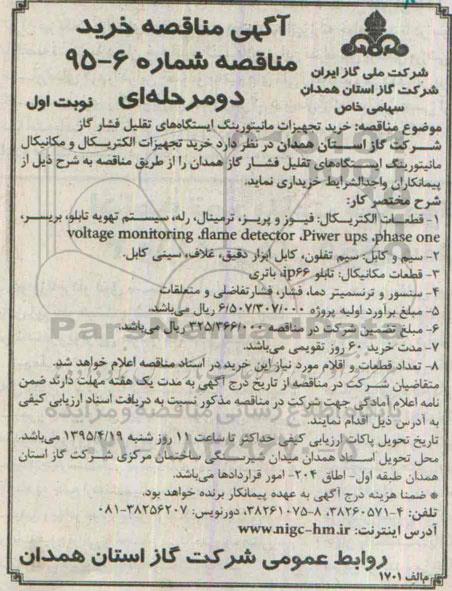 آگهی مناقصه خرید
مناقصه شماره ۶-۹۵
دومرحله‌ای
نوبت اول
شرکت ملی گاز ایران
شرکت گاز استان همدان
سهامی خاص
موضوع مناقصه: خرید تجهیزات مانیتورینگ ایستگاه‌های تقلیل فشار گاز
شرکت گاز استان همدان در نظر دارد خرید تجهیزات الکتریکال و مکانیکال
مانیتورینگ ایستگاه‌های تقلیل فشار گاز همدان را از طریق مناقصه به شرح ذیل از
پیمانکاران واجدالشرایط خریداری نماید.
شرح مختصر کار:
۱- قطعات الکتریکال: فیوز و پریز، ترمینال، رله، سیستم تهویه تابلو، بریسر،
voltage monitoring ،flame detector ،Piwer ups ،phase one
۲- سیم و کابل: سیم تفلون، کابل ابزار دقیق، غلاف، سینی کابل.
۳- قطعات مکانیکال: تابلو ip۶۶، باتری
۴- سنسور و ترنسمیتر دما، فشار، فشارتفاضلی و متعلقات
۵- مبلغ برآورد اولیه پروژه ۶/۵۰۷/۳۰۷/۰۰۰ ریال می‌باشد.
۶- مبلغ تضمین شرکت در مناقصه ۳۲۵/۳۶۶/۰۰۰ ریال می‌باشد.
۷- مدت خرید ۶۰ روز تقویمی می‌باشد.
۸- تعداد قطعات و اقلام مورد نیاز این خرید در اسناد مناقصه اعلام خواهد شد.
متقاضیان شرکت در مناقصه از تاریخ درج آگهی به مدت یک هفته مهلت دارند ضمن
نامه اعلام آمادگی جهت شرکت در مناقصه مذکور نسبت به دریافت اسناد ارزیابی کیفی
به آدرس ذیل اقدام نمایند.
تاریخ تحویل پاکات ارزیابی کیفی حداکثر تا ساعت ۱۱ روز شنبه ۱۳۹۵/۴/۱۹ می‌باشد.
محل تحویل اسناد همدان میدان شیرسنگی ساختمان مرکزی شرکت گاز استان
همدان طبقه اول- اطاق ۲۰۴- امور قراردادها می‌باشد.
* ضمنا هزینه درج آگهی به عهده پیمانکار برنده خواهد بود.
تلفن: ۴-۳۸۲۶۰۵۷۱، ۸-۳۸۲۶۱۰۷۵، دورنویس: ۳۸۲۵۶۲۰۷-۰۸۱
آدرس اینترنت: www.nigc-hm.ir
روابط عمومی شرکت گاز استان همدان
م‌الف ۱۷۰۱
ParsNamadData